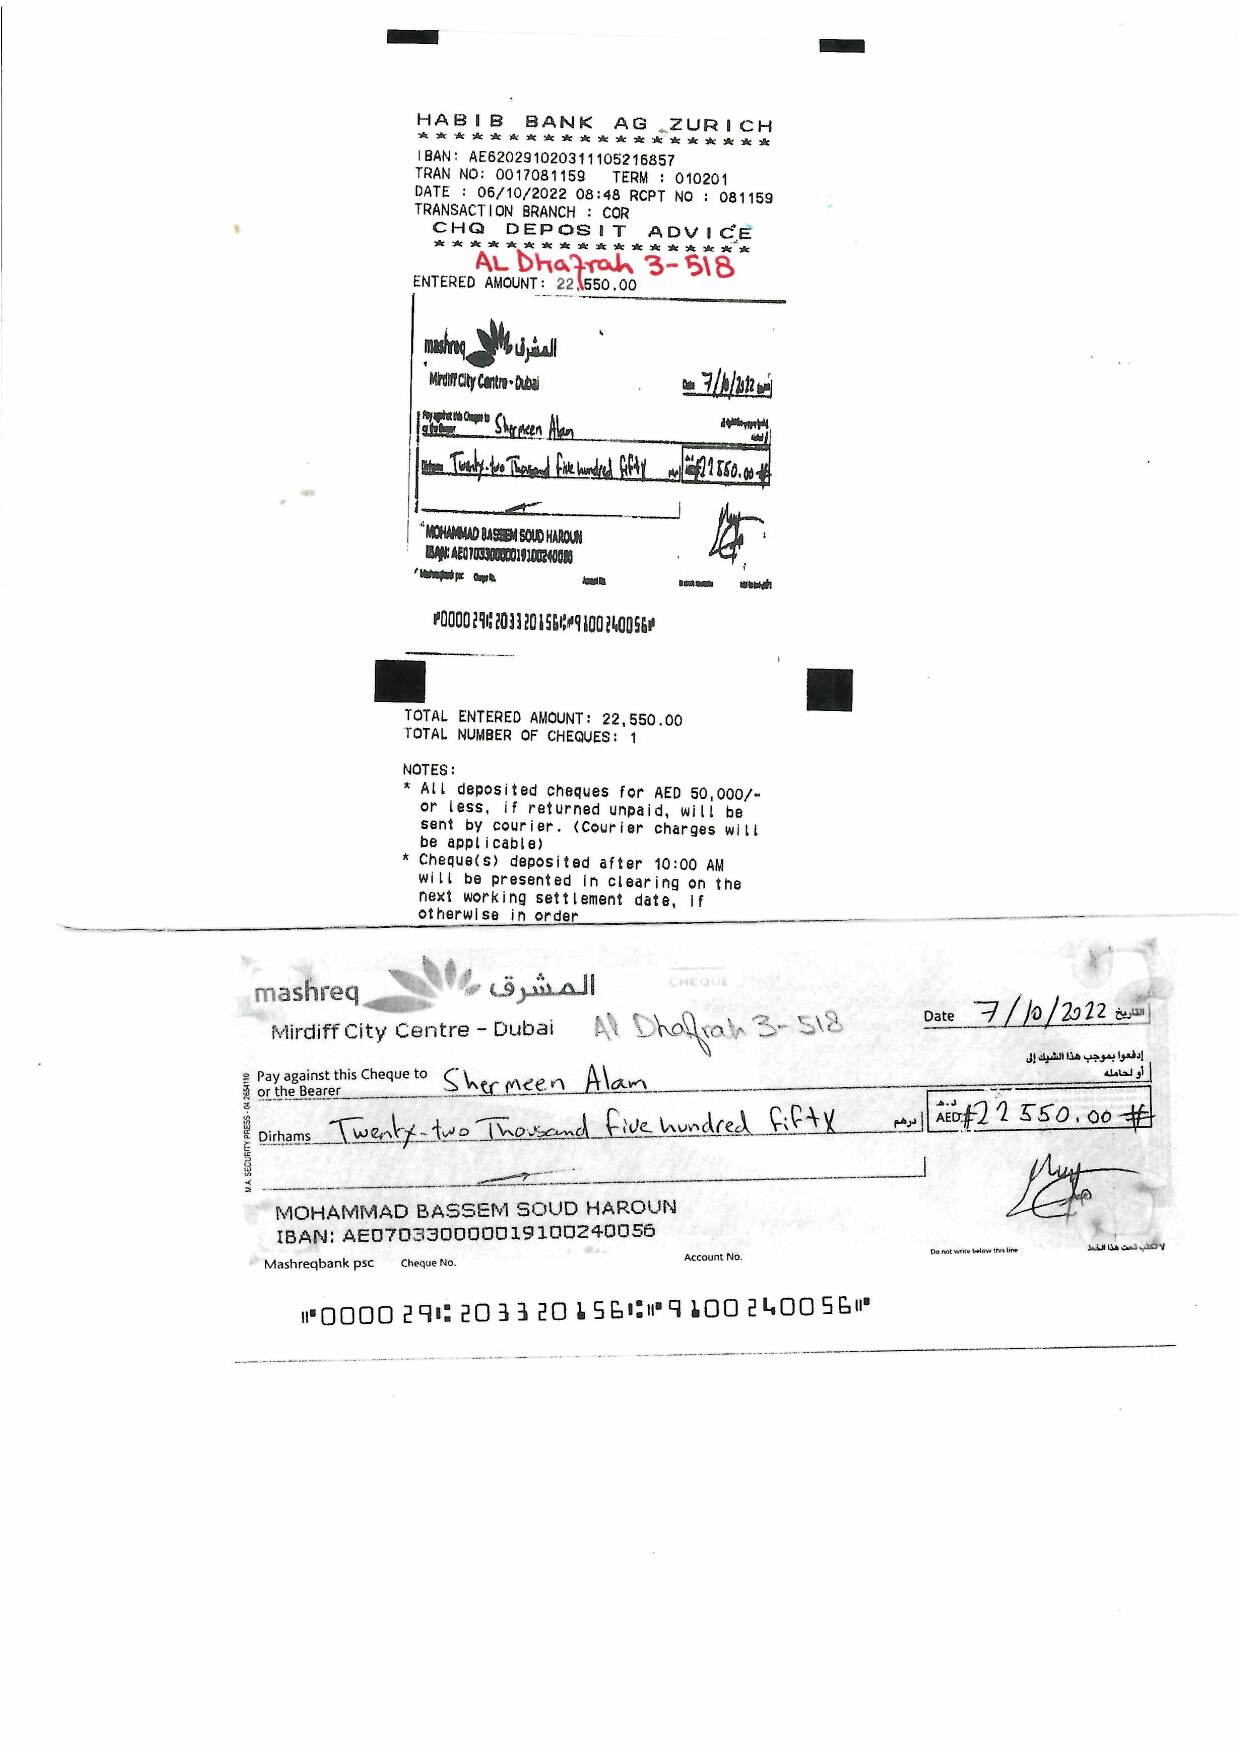 HABIB BANK AG ZURICH
********************
IBAN: AE620291020311105216857
TRAN NO: 0017081159 TERM : 010201
DATE : 06/10/2022 08:48 RCPT NO : 081159
TRANSACTION BRANCH : COR
CHQ DEPOSIT ADVICE
******************
AL Dhafrah 3-518
ENTERED AMOUNT: 22,550.00
mashreq المشرق
Mirdiff City Centre - Dubai
Date 7/10/2022 التاريخ
Pay against this Cheque to Shermeen Alam
or the Bearer
Dirhams Twenty-two Thousand five hundred fifty درهم #22550.00#
MOHAMMAD BASSEM SOUD HAROUN
IBAN: AE070330000019100240056
Mashreqbank psc Cheque No. Account No.
⑈000029⑆203320156⑆⑈9100240056⑈
TOTAL ENTERED AMOUNT: 22,550.00
TOTAL NUMBER OF CHEQUES: 1
NOTES:
* All deposited cheques for AED 50,000/-
or less, if returned unpaid, will be
sent by courier. (Courier charges will
be applicable)
* Cheque(s) deposited after 10:00 AM
will be presented in clearing on the
next working settlement date, If
otherwise in order
mashreq المشرق
CHEQUE
Mirdiff City Centre - Dubai Al Dhafrah 3-518
Date 7/10/2022 التاريخ
إدفعوا بموجب هذا الشيك إلى
Pay against this Cheque to Shermeen Alam
or the Bearer أو لحامله
Dirhams Twenty-two Thousand five hundred fifty درهم
د.هـ
AED #22550.00#
MOHAMMAD BASSEM SOUD HAROUN
IBAN: AE070330000019100240056
Mashreqbank psc Cheque No. Account No. Do not write below this line لا تكتب تحت هذا الخط
⑈000029⑆203320156⑆⑈9100240056⑈